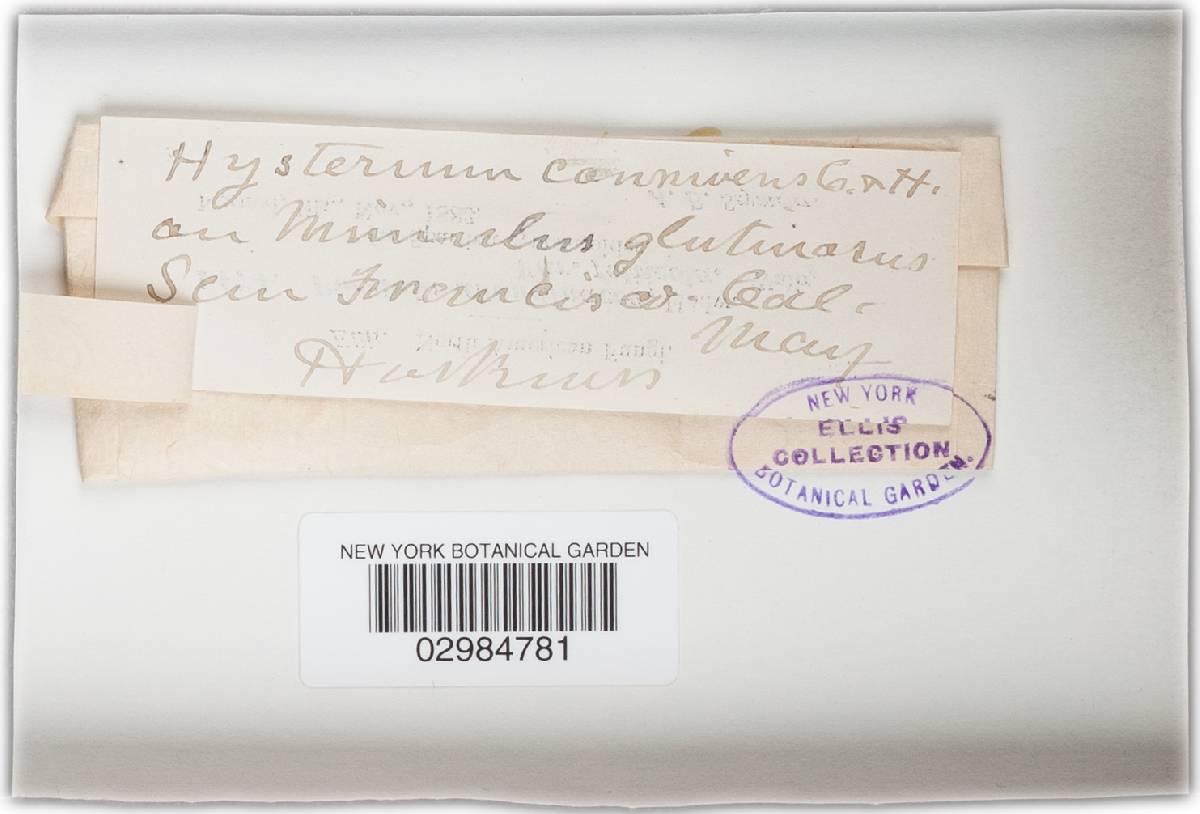 Hysterium connivens C. & H.
on Mimulus glutinosus
San Francisco. Cal.
May
Harkness
NEW YORK
ELLIS
COLLECTION
BOTANICAL GARDEN.
NEW YORK BOTANICAL GARDEN
02984781